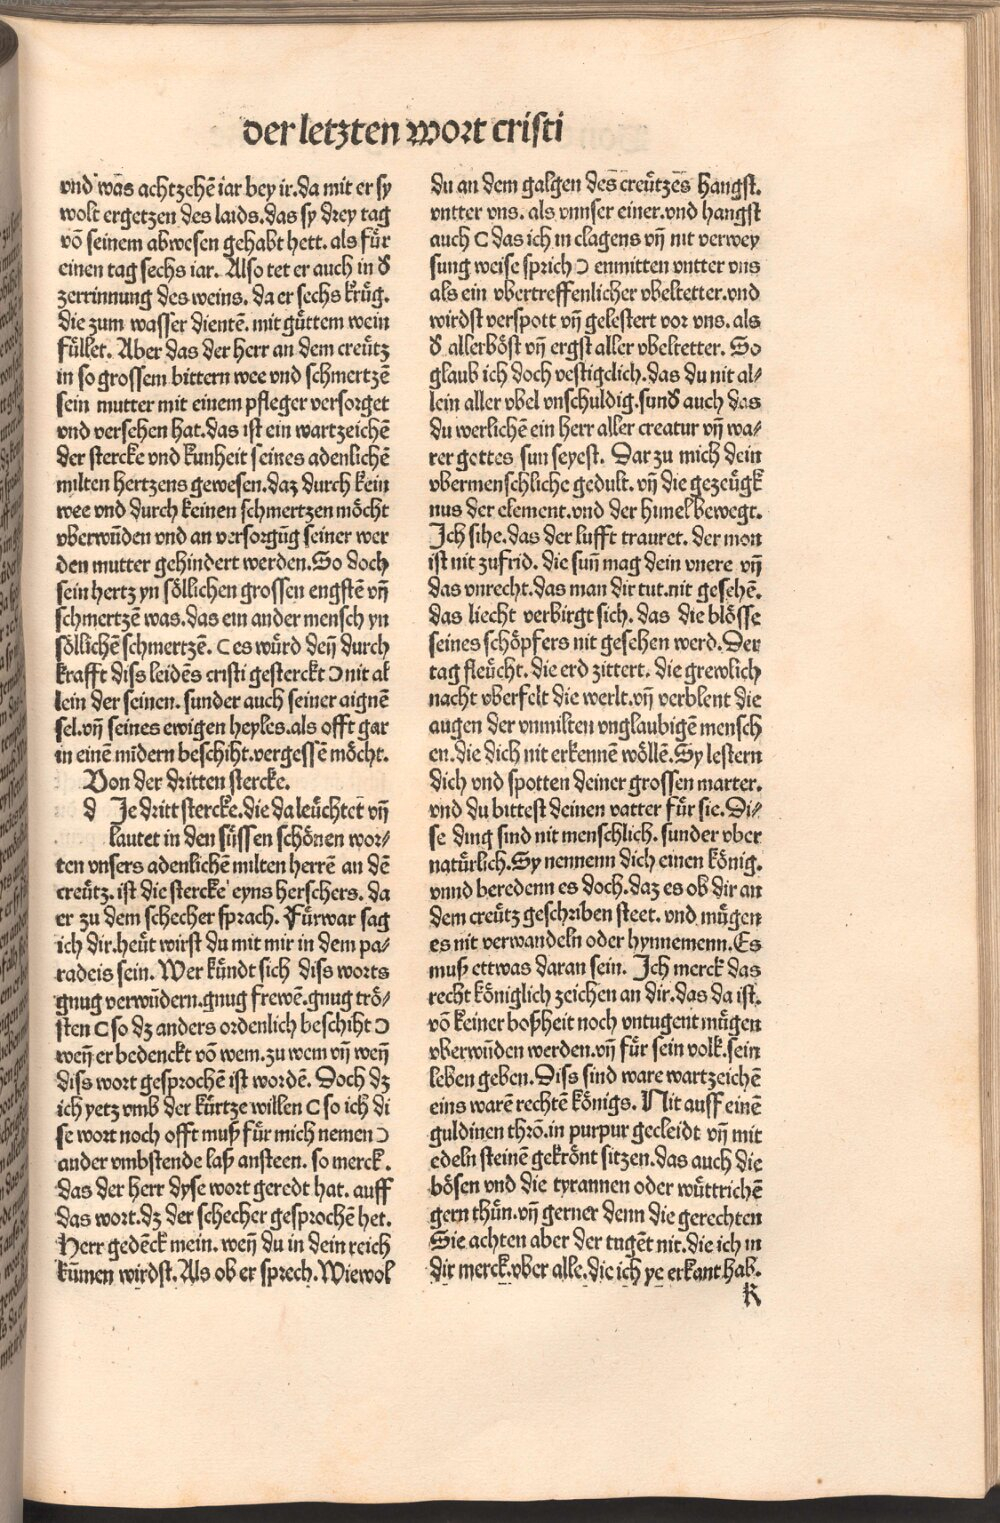 der letzten wort cristi
vnd was achtzehē iar bey ir.da mit er sy
wolt ergetzen des laids.das sy drey tag
vō seinem abwesen gehabt hett. als für
einen tag sechs iar. Also tet er auch in d̕
zerrinnung des weins. da er sechs krüg.
die zum wasser dientē. mit gůttem wein
füllet. Aber das der herr an dem creütz
in so grossem bittern wee vnd schmertzē
sein mutter mit einem pfleger versorget
vnd versehen hat.das ist ein wartzeichē
der stercke vnd kunheit seines adenlichē
milten hertzens gewesen.daz durch kein
wee vnd durch keinen schmertzen möcht
vberwūden vnd an versorgūg seiner wer
den mutter gehindert werden.So doch
sein hertz yn söllichen grossen engstē vn̄
schmertzē was.das ein ander mensch yn
söllichē schmertzē. ( es würd den̄ durch
krafft diss leidēs cristi gesterckt ) nit al
lein der seinen. sunder auch seiner aignē
sel.vn̄ seines ewigen heyles.als offt gar
in einē mīdern beschiht.vergessē möcht.
Von der dritten stercke.
d Je dritt stercke.die da leüchtet vn̄
lautet in den süssen schönen wor⸗
ten vnsers adenlichē milten herrē an dē
creütz. ist die stercke eyns herschers. da
er zu dem schecher sprach. Fürwar sag
ich dir.heüt wirst du mit mir in dem pa⸗
radeis sein. Wer kündt sich diss worts
gnug verwūdern.gnug frewē.gnug trö⸗
sten ( so dz anders ordenlich beschiht )
wen̄ er bedenckt vō wem.zu wem vn̄ wen̄
diss wort gesprochē ist wordē. Doch dz
ich yetz vmb der kürtze willen ( so ich di
se wort noch offt muß für mich nemen )
ander vmbstende laß ansteen. so merck.
das der herr dyse wort geredt hat. auff
das wort.dz der schecher gesprochē het.
Herr gedēck mein. wen̄ du in dein reich
kūmen wirdst. Als ob er sprech. Wiewol
du an dem galgen des creützes hangst.
vntter vns. als vnnser einer.vnd hangst
auch ( das ich in clagens vn̄ nit verwey
sung weise sprich ) enmitten vntter vns
als ein vbertreffenlicher vbeltetter.vnd
wirdst verspott vn̄ gelestert vor vns. als
d̕ allerböst vn̄ ergst aller vbeltetter. So
glaub ich doch vestigclich.das du nit al⸗
lein aller vbel vnschuldig.sund̕ auch das
du werlichē ein herr aller creatur vn̄ wa⸗
rer gottes sun seyest. Dar zu mich dein
vbermenschliche gedult. vn̄ die gezeügk
nus der element.vnd der himel bewegt.
Ich sihe.das der lufft trauret. der mon
ist nit zufrid. die sun̄ mag dein vnere vn̄
das vnrecht.das man dir tut.nit gesehē.
das liecht verbirgt sich. das die blösse
seines schöpfers nit gesehen werd.Der
tag fleücht. die erd zittert. die grewlich
nacht vberfelt die werlt.vn̄ verblent die
augen der vnmilten vnglaubigē mensch
en.die dich nit erkennē wöllē.Sy lestern
dich vnd spotten deiner grossen marter.
vnd du bittest deinen vatter für sie.Di⸗
se ding sind nit menschlich. sunder vber
natürlich.Sy nennenn dich einen könig.
vnnd beredenn es doch.daz es ob dir an
dem creütz geschriben steet. vnd mügen
es nit verwandeln oder hynnemenn.Es
muß ettwas daran sein. Ich merck das
recht königlich zeichen an dir.das da ist.
vō keiner boßheit noch vntugent mügen
vberwūden werden.vn̄ für sein volk.sein
leben geben.Diss sind ware wartzeichē
eins warē rechtē königs. Nit auff einē
guldinen thrō.in purpur gecleidt vn̄ mit
edeln steinē gekrönt sitzen.das auch die
bösen vnd die tyrannen oder wüttrichē
gern thůn.vn̄ gerner denn die gerechten
Sie achten aber der tugēt nit.die ich in
dir merck.vber alle.die ich ye erkant hab.
K